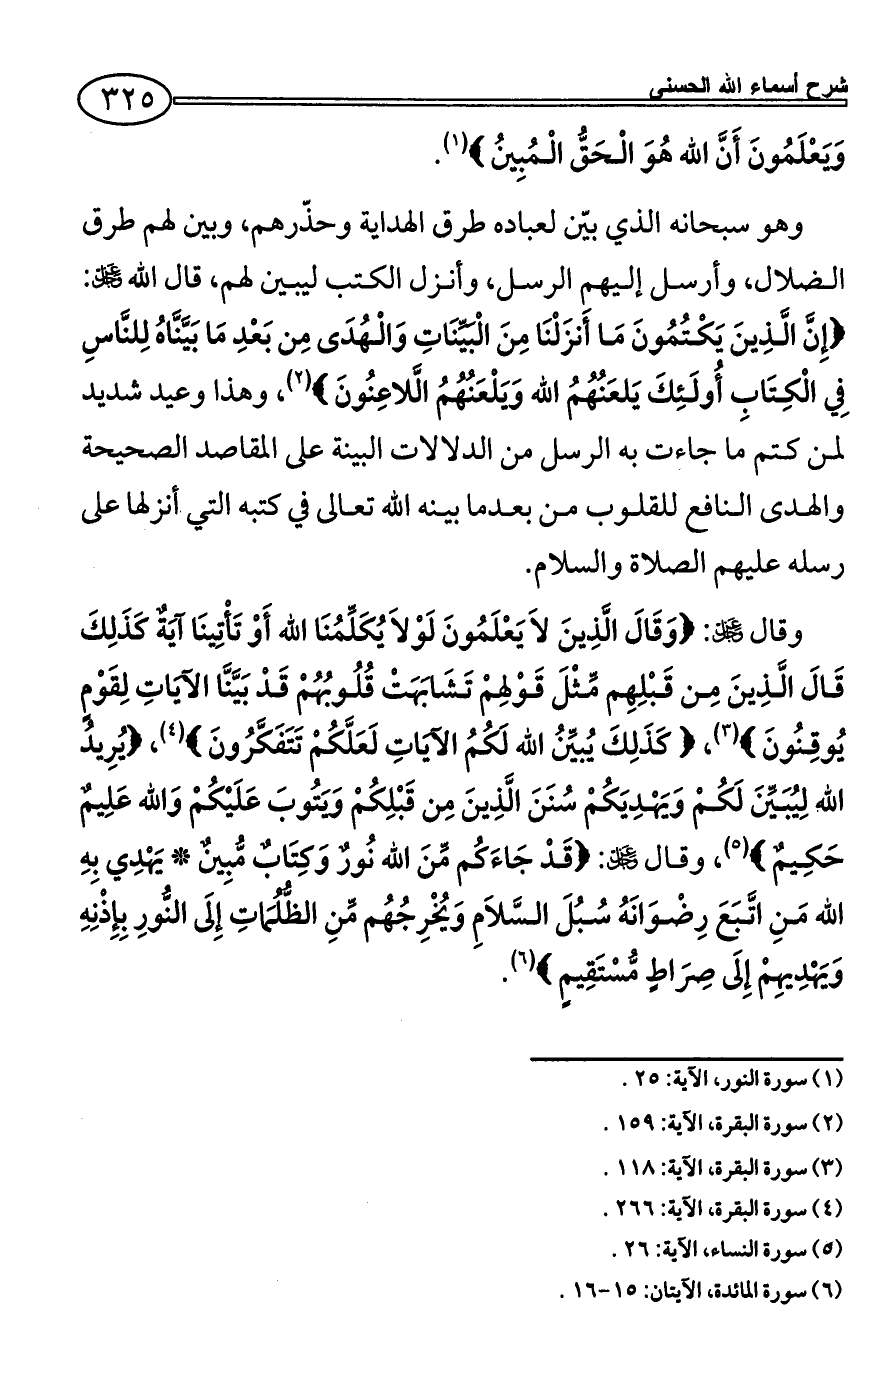 شرح أسماء الله الحسنى
٣٢٥
وَيَعْلَمُونَ أَنَّ الله هُوَ الْـحَقُّ الْـمُبِينُ ﴾(١).
وهو سبحانه الذي بيّن لعباده طرق الهداية وحذّرهم، وبين لهم طرق
الضلال، وأرسل إليهم الرسل، وأنزل الكتب ليبين لهم، قال الله ﷻ:
﴿إِنَّ الَّـذِينَ يَكْتُمُونَ مَـا أَنزَلْنَا مِنَ الْبَيِّنَاتِ وَالْـهُدَى مِن بَعْدِ مَا بَيَّنَّاهُ لِلنَّاسِ
فِي الْكِتَابِ أُولَـئِكَ يَلعَنُهُمُ الله وَيَلْعَنُهُمُ الَّلاعِنُونَ ﴾(٢)، وهذا وعيد شديد
لمن كتم ما جاءت به الرسل من الدلالات البينة على المقاصد الصحيحة
والهدى النافع للقلوب من بعدما بينه الله تعالى في كتبه التي أنزلها على
رسله عليهم الصلاة والسلام.
وقال ﷻ: ﴿وَقَالَ الَّذِينَ لاَ يَعْلَمُونَ لَوْلاَ يُكَلِّمُنَا الله أَوْ تَأْتِينَا آيَةٌ كَذَلِكَ
قَالَ الَّـذِينَ مِـن قَـبْلِهِم مِّثْلَ قَـوْلِهِمْ تَـشَابَهَتْ قُلُوبُهُمْ قَـدْ بَيَّنَّا الآيَاتِ لِقَوْمٍ
يُوقِـنُونَ ﴾(٣)، ﴿ كَذَلِكَ يُبيِّنُ الله لَكُمُ الآيَاتِ لَعَلَّكُمْ تَتَفَكَّرُونَ ﴾(٤)، ﴿يُرِيدُ
الله لِيُبَيِّنَ لَكُـمْ وَيَهْدِيَكُمْ سُنَنَ الَّذِينَ مِن قَبْلِكُمْ وَيَتُوبَ عَلَيْكُمْ وَالله عَلِيمٌ
حَكِيمٌ ﴾(٥)، وقـال ﷻ: ﴿قَـدْ جَاءَكُم مِّنَ الله نُورٌ وَكِتَابٌ مُّبِينٌ * يَهْدِي بِهِ
الله مَـنِ اتَّبَعَ رِضْـوَانَهُ سُبُلَ الـسَّلاَمِ وَيُخْرِجُهُم مِّنِ الظُّلُمَاتِ إِلَى النُّورِ بِإِذْنِهِ
وَيَهْدِيهِمْ إِلَى صِرَاطٍ مُّسْتَقِيمٍ ﴾(٦).
(١) سورة النور، الآية: ٢٥ .
(٢) سورة البقرة، الآية: ١٥٩ .
(٣) سورة البقرة، الآية: ١١٨ .
(٤) سورة البقرة، الآية: ٢٦٦ .
(٥) سورة النساء، الآية: ٢٦ .
(٦) سورة المائدة، الآيتان: ١٥-١٦ .